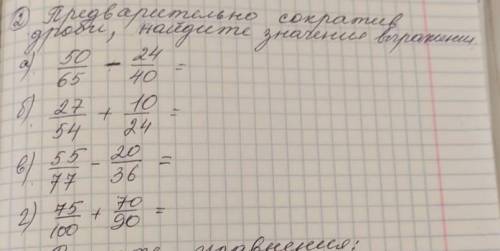 ② Предварительно сократив
дроби, найдите значение выражения.
а) 50/65 - 24/40 =
б) 27/54 + 10/24 =
в) 55/77 - 20/36 =
г) 75/100 + 70/90 =
уравнения: